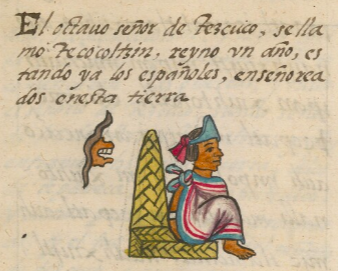 El octauo señor de Tezcuco, se lla
mo Tecocoltzin, reyno vn año, es
tando ya los españoles, enseñorea
dos enesta tierra